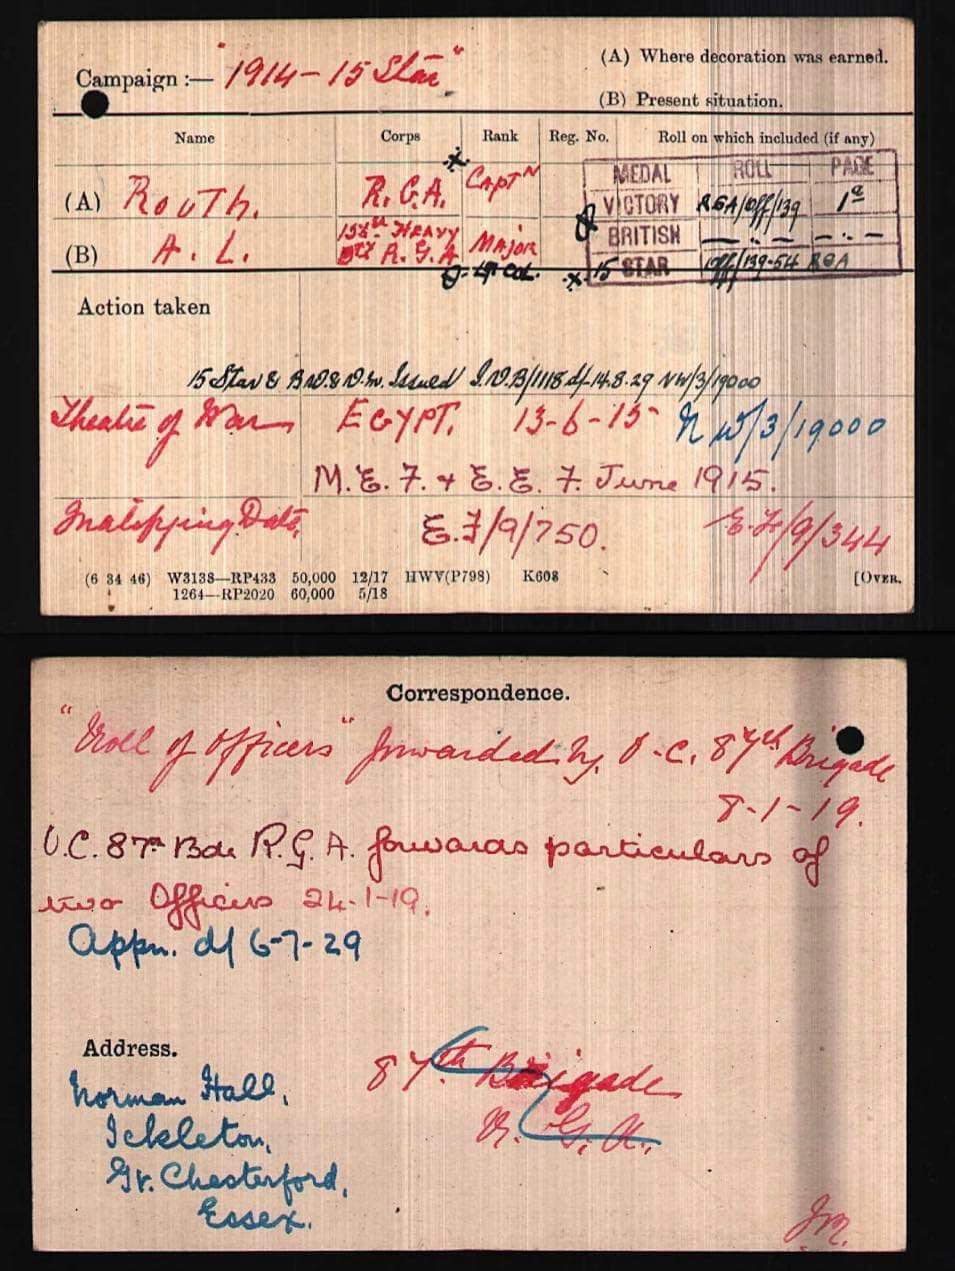 Campaign :— "1914-15 Star"
(A) Where decoration was earned.
(B) Present situation.
Name Corps Rank Reg. No. Roll on which included (if any)
MEDAL ROLL PAGE
(A) Routh. R.G.A. Captn
VICTORY RGA/Off/139 1a
BRITISH —.— —.—
(B) A. L. HEAVY R.G.A. Major
Lt Col. 15 STAR Off/139-54 RGA
Action taken
15 Star & B.W. & V.M. Issued I.V.B/1118 d/-14.8.29 NW/3/19000
Theatre of War EGYPT. 13-6-15 NW/3/19000
M.E.F. & E.E.F. June 1915.
Qualifying Date E.F/9/750. E.F/9/344
(6 34 46) W3138—RP433 50,000 12/17 HWV(P798) K608 [OVER.
1264—RP2020 60,000 5/18
Correspondence.
"Roll of Officers" forwarded by O.C. 87th Brigade
8-1-19.
O.C. 87th Bde R.G.A. forwards particulars of
two Officers 24-1-19.
Appn. d/ 6-7-29
Address.
87th Brigade
R.G.A.
Norman Hall,
Ickleton,
Gt. Chesterford,
Essex.